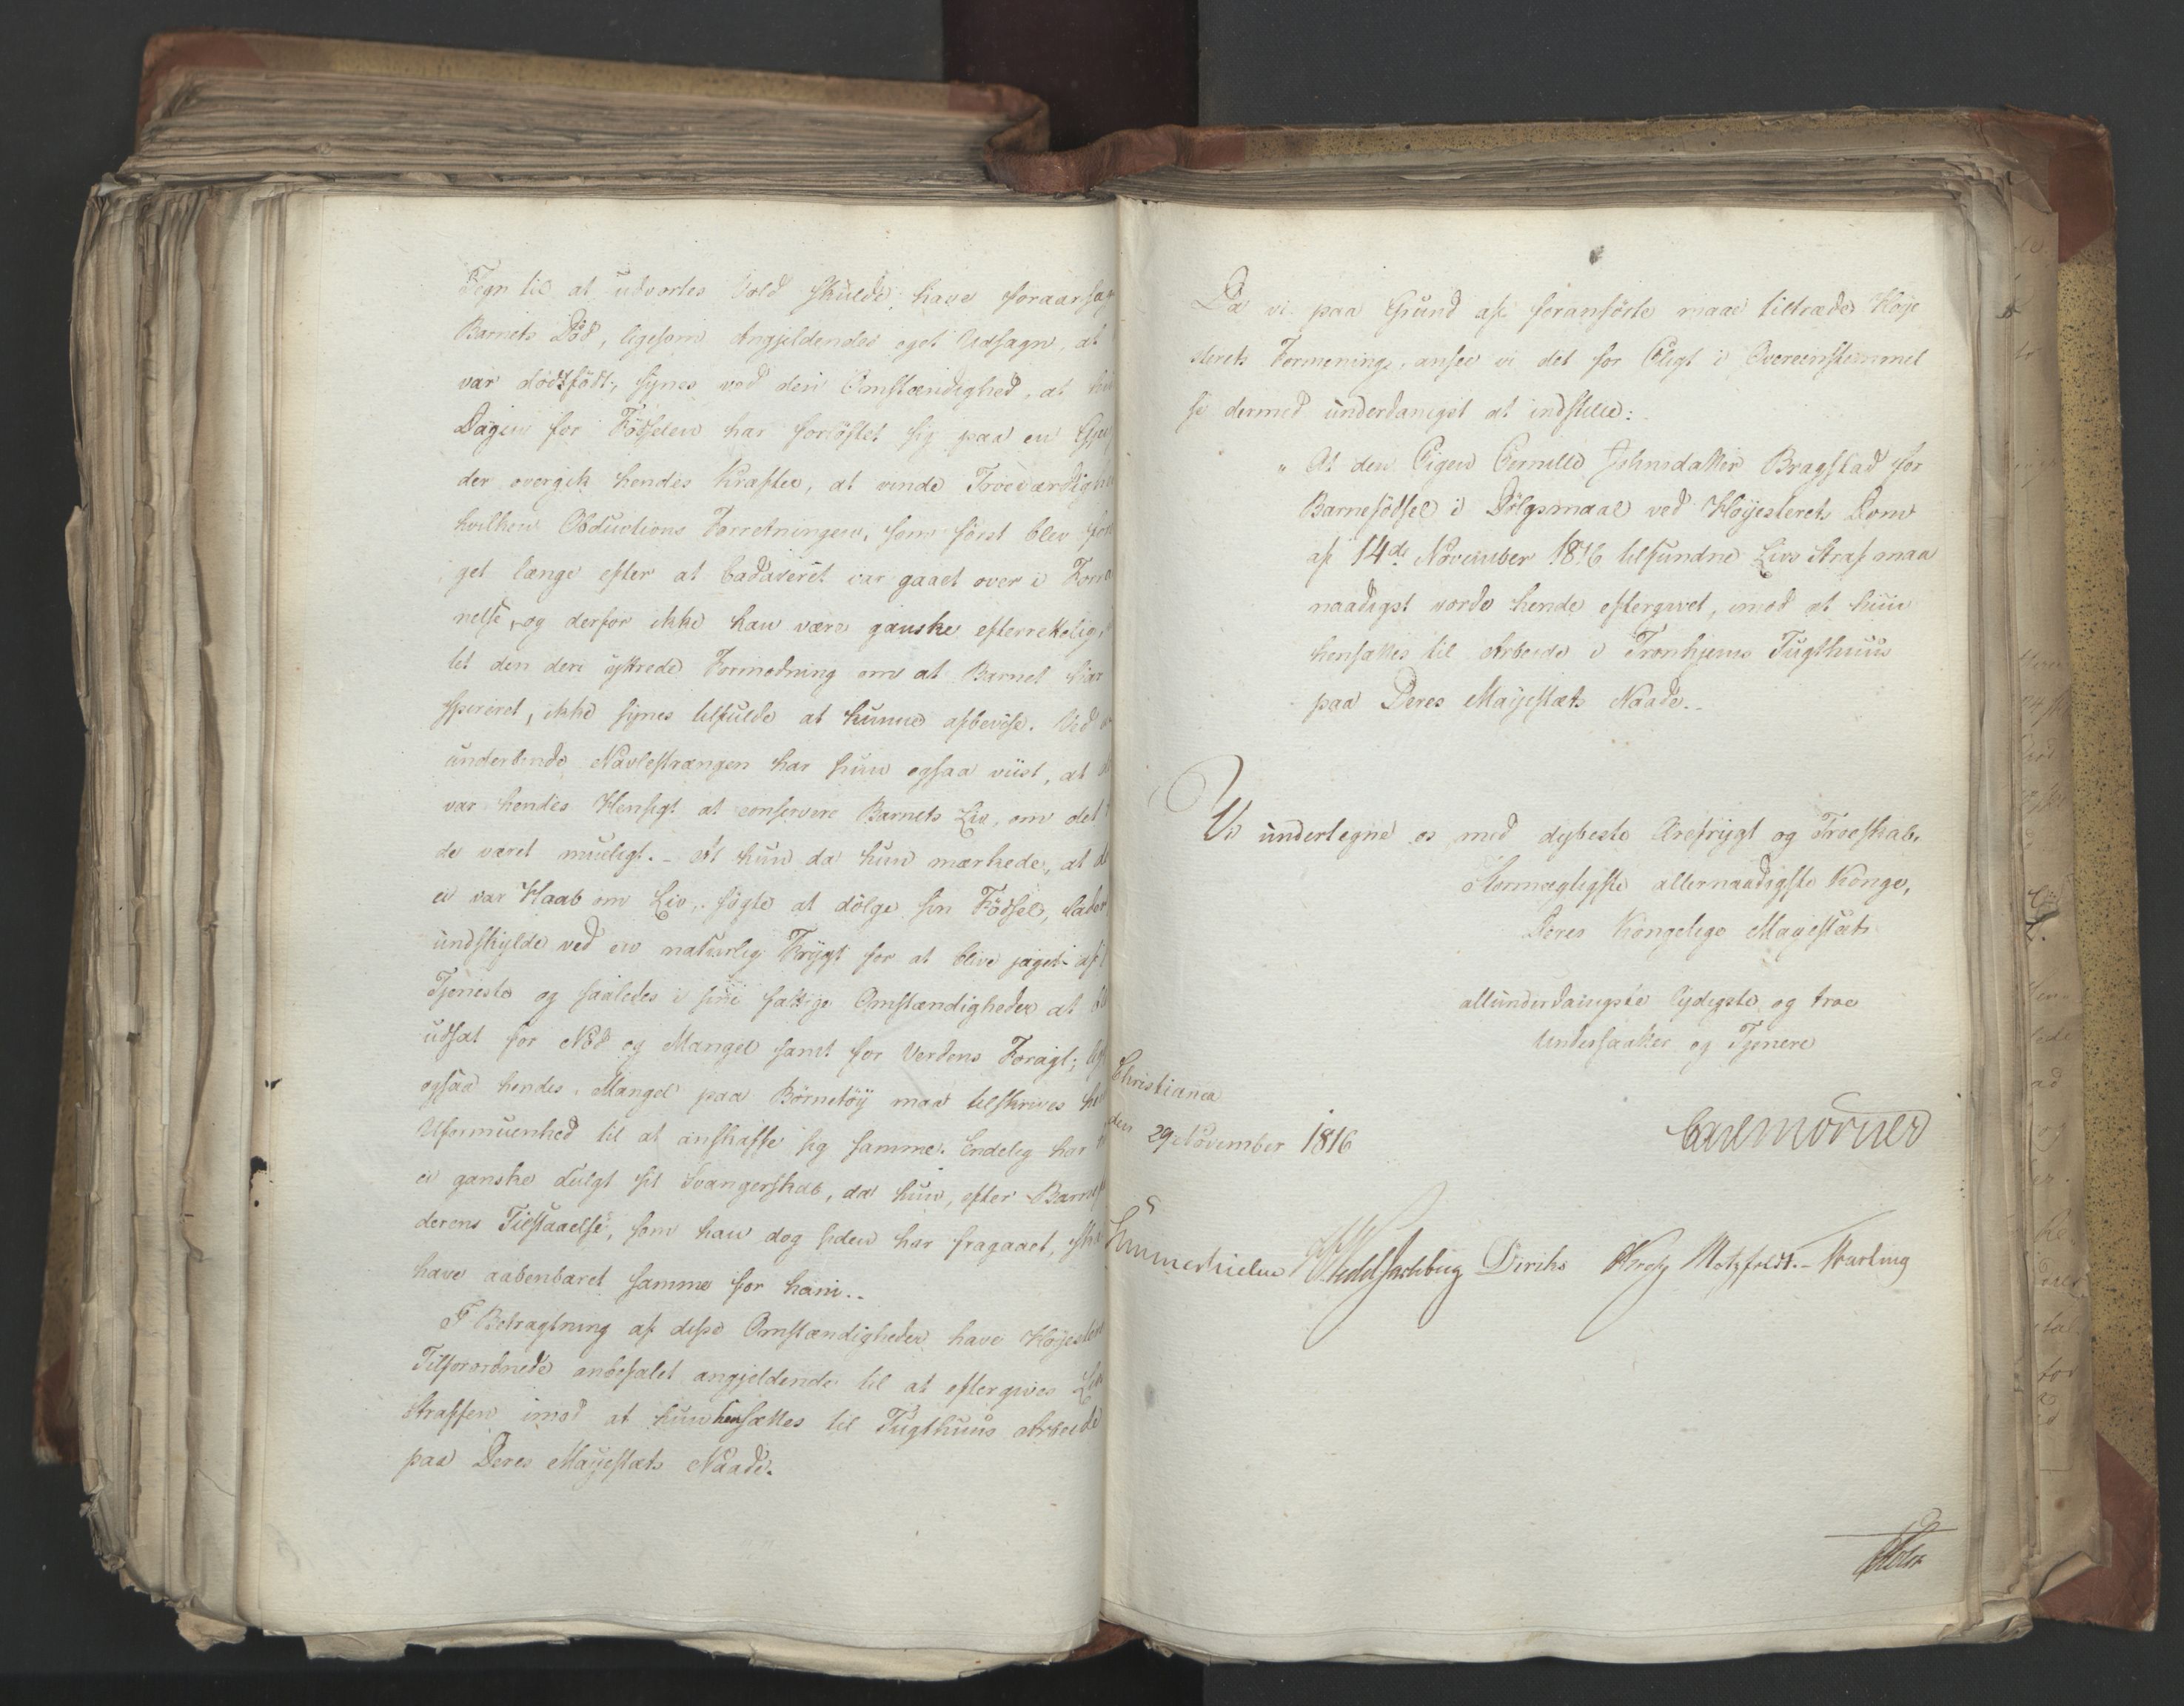 Tegn til at udvortes Vold skulde have foraarsag
Barnets Död, ligesom Angjeldendes eget Udsagn, at
var dödtfödt, synes ved den Omstændighed, at
Dagen for Födselen har forlöftet sig paa en
der overgik hendes Kræfter, at vinde Troeværdighe
hvilken Obductions Forretningen, som först blev
get længe efter at Cadaveret var gaaet over i Forra
nelse, og derfor ikke kan være ganske efterrettelig,
let den deri yttrede Formodning om at Barnet har
spireret, ikke synes tilfulde at kunne afbevise. Ved
underbinde Navlestrængen har hun ogsaa viist, at
var hendes Hensigt at conservere Barnets Liv, om det
de været mueligt. - At hun da hun mærkede, at
ei var Haab om Liv, sögte at dölge sin Födsel, lader
undskylde ved en naturlig Frygt for at blive jaget af
Tjeneste og saaledes i sine fattige Omstændigheder at
udsat for Nöd og Mangel samt for Verdens Foragt;
ogsaa hendes Mangel paa Börnetöy maa tilskrives
Uformuenhed til at anskaffe sig samme. Endelig har
ei ganske dulgt sit Svangerskab, da hun, efter Barnefa
derens Tilstaaelse, som han dog siden har fragaaet,
have aabenbaret samme for ham. -
I Betragtning af disse Omstændigheder have Höyester
Tilforordnede anbefalet angjeldende til at eftergives Livs
Straffen imod at hun hensættes til Tugthuus Arbeide
paa Deres Mayestæts Naade.
Da vi paa Grund af foranförte maae tiltræde Höye
sterets Formening, ansee vi det for Pligt i Overeenstemmel
se dermed underdanigst at indstille:
" At den Pigen Pernille Johnsdatter Bragstad for
Barnefödsel i Dölgsmaal ved Höyesterets Dom
af 14de November 1816 tilfundne Livs Straf maa
naadigst vorde hende eftergivet, imod at hun
hensættes til Arbeide i Tronhjems Tugthuus
paa Deres Mayestæts Naade. -
Vi undertegne os med dybeste Ærefrygt og Troeskab,
Stormægtigste allernaadigste Konge,
Deres Kongelige Mayestæts
allunderdanigste lydigste og troe
Undersaatter og Tjenere
Christiania
den 29 November 1816
Carl Mörner
Sommerhielm Wedel Jarlsberg Diriks Krog Motzfeldt. -
Holst